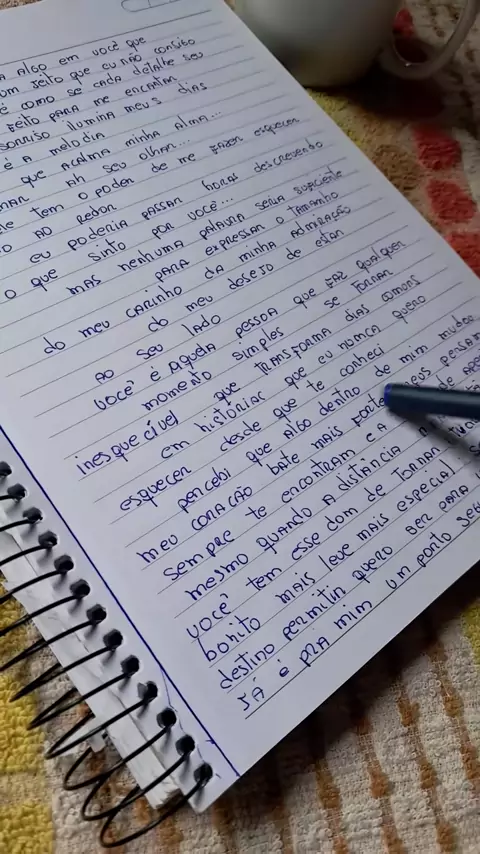 A ALGO EM VOCÊ QUE
UM JEITO QUE EU NÃO CONSIGO
É COMO SE CADA DETALHE SEU
FEITO PARA ME ENCANTAR
SORRISO ILUMINA MEUS DIAS
É A MELODIA
QUE ACALMA MINHA ALMA...
AH SEU OLHAR...
TEM O PODER DE ME FAZER ESQUECER
AO REDOR
EU PODERIA PASSAR HORAS DESCREVENDO
O QUE SINTO POR VOCÊ...
MAS NENHUMA PALAVRA SERIA SUFICIENTE
PARA EXPRESSAR O TAMANHO
DO MEU CARINHO DA MINHA ADMIRAÇÃO
DO MEU DESEJO DE ESTAR
AO SEU LADO
VOCÊ É AQUELA PESSOA QUE FAZ QUALQUER
MOMENTO SIMPLES SE TORNAR
INESQUECÍVEL QUE TRANSFORMA DIAS COMUNS
EM HISTÓRIAS QUE EU NUNCA QUERO
ESQUECER DESDE QUE TE CONHECI
PERCEBI QUE ALGO DENTRO DE MIM MUDOU
MEU CORAÇÃO BATE MAIS FORTE MEUS
SEMPRE TE ENCONTRAM E A
MESMO QUANDO A DISTÂNCIA
VOCÊ TEM ESSE DOM DE TORNAR
BONITO MAIS LEVE MAIS ESPECIAL
DESTINO PERMITIR QUERO SER PARA
JÁ É PRA MIM UM PORTO